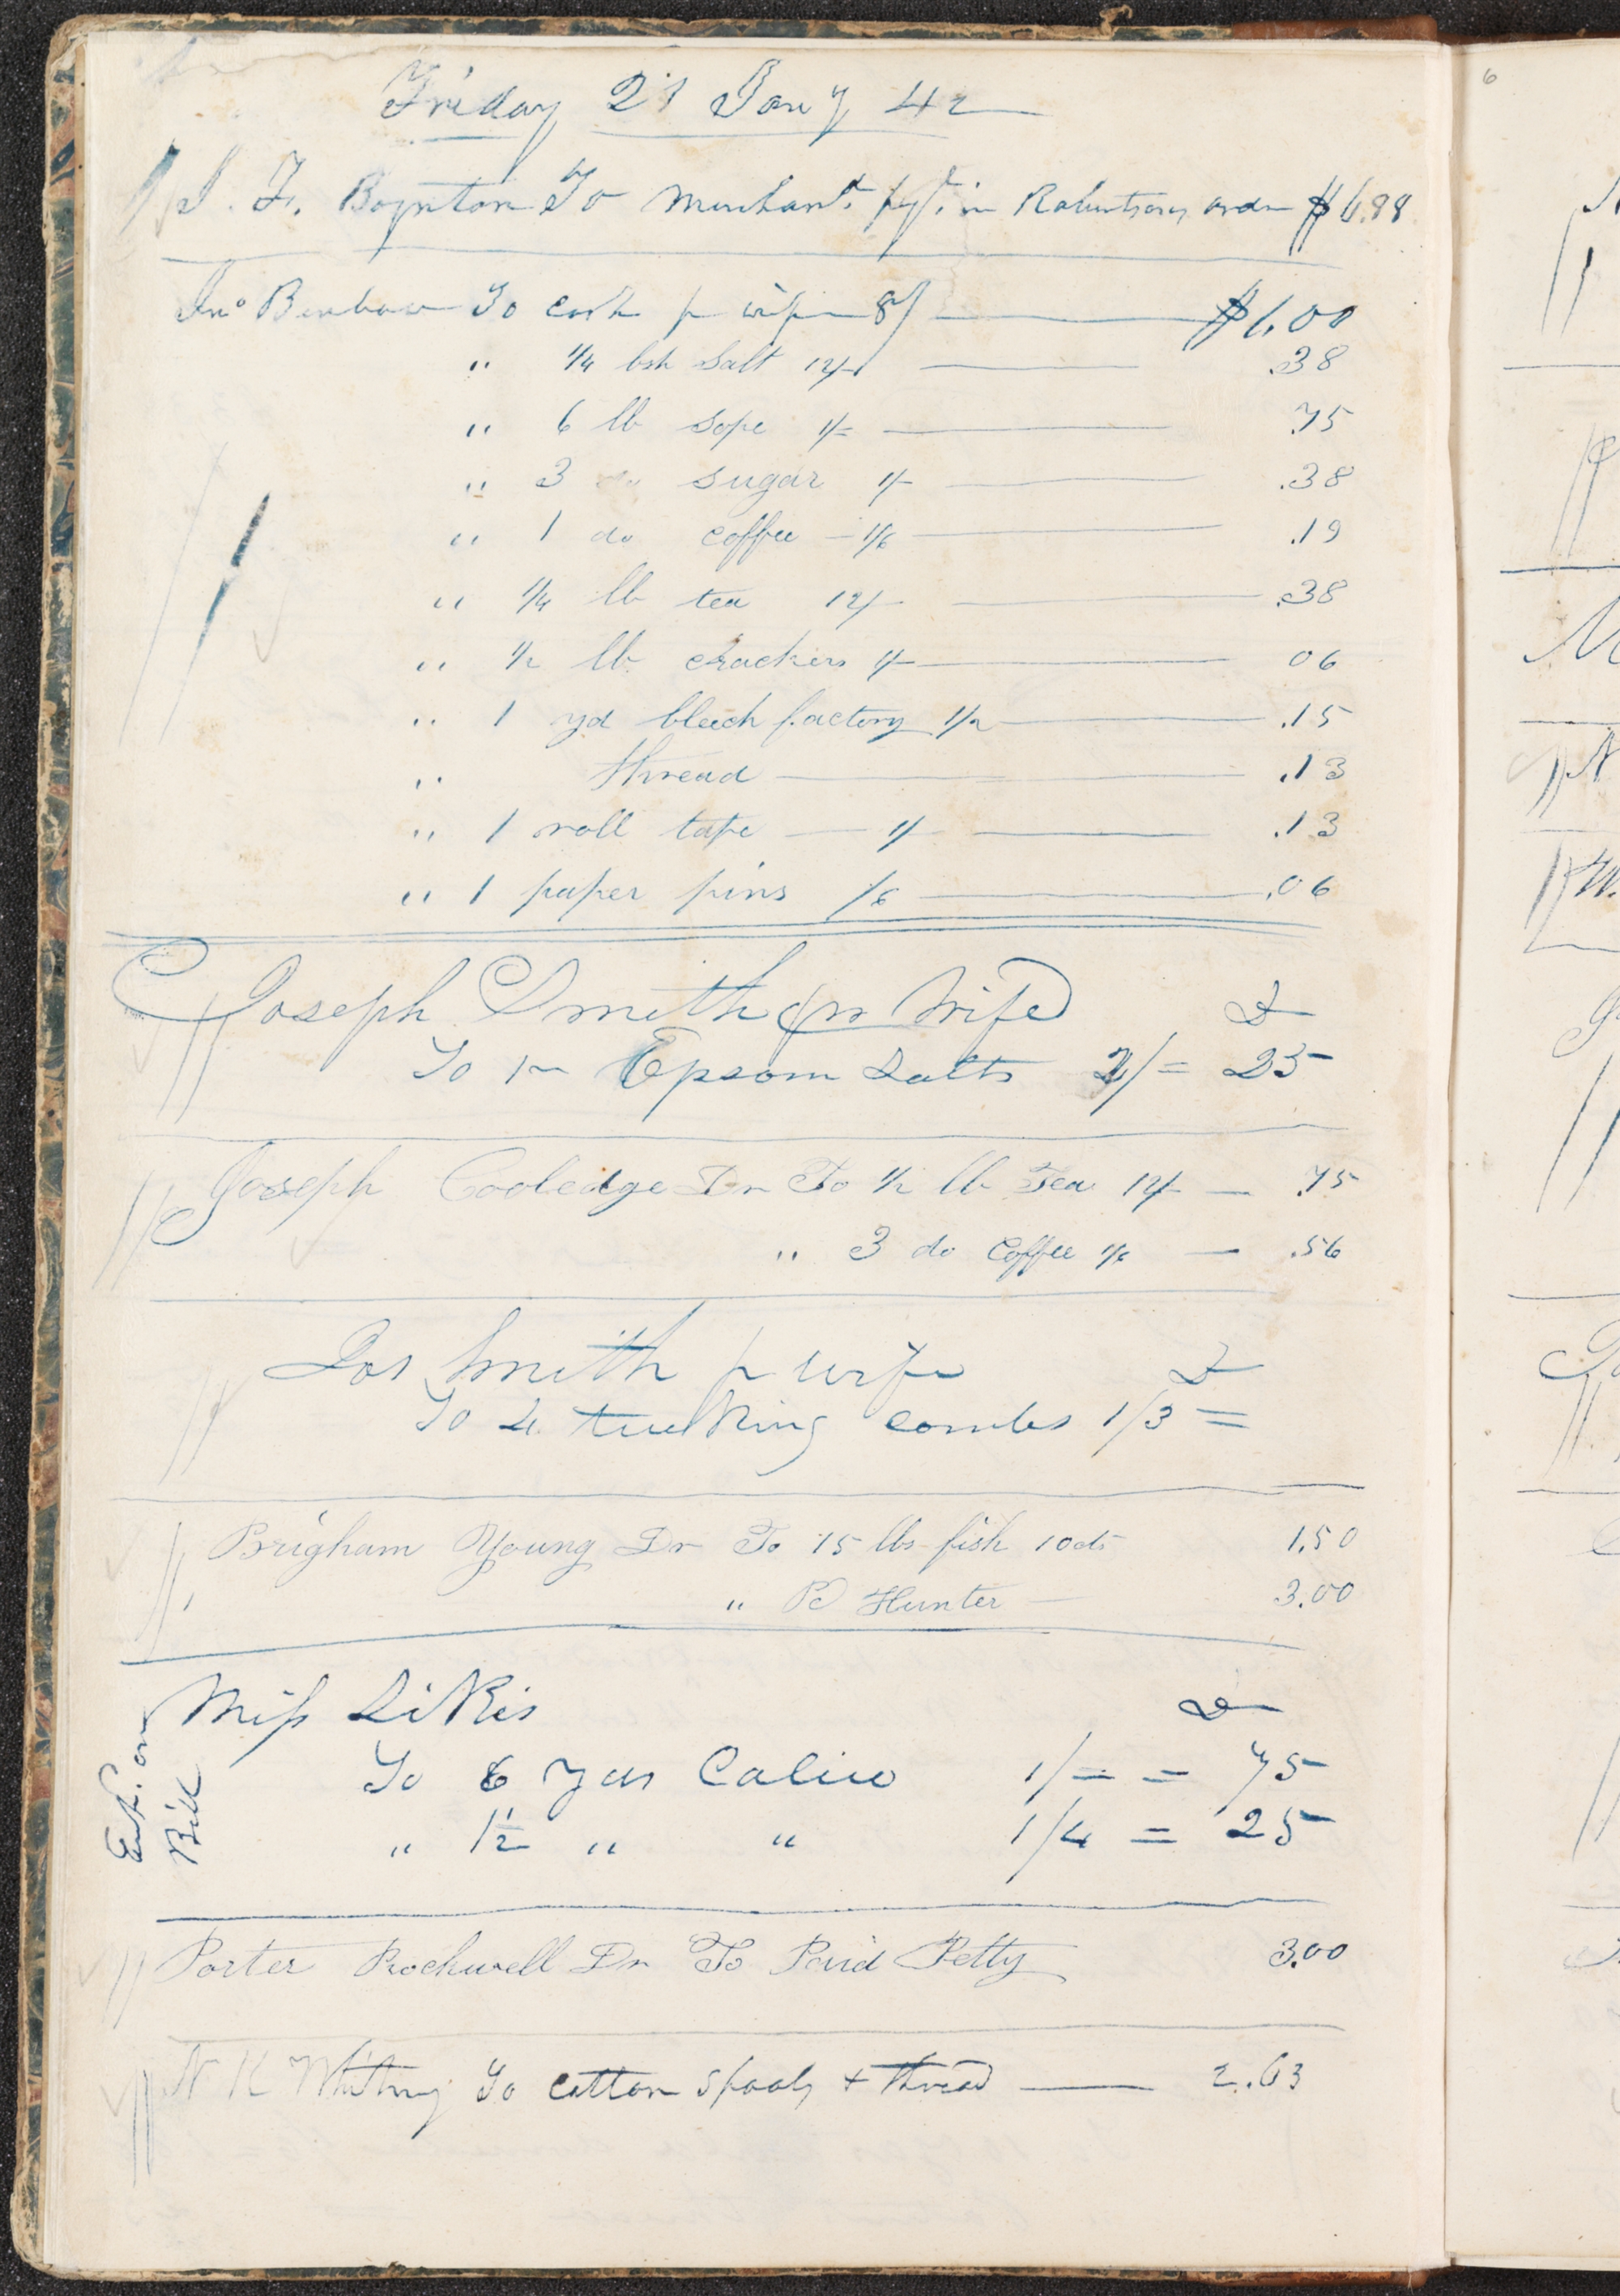 Friday 21 Jany 42
J. F. Boynton To Merchant. pr in Robertsons order $6.88
Jno Benbow To cash pr wife 8/ $1.00
" 1/4 bsh Salt 12/ .38
" 6 lb Sope 1/= .75
" 3 do Sugar 1/ .38
" 1 do coffee 1/6 .19
" 1/4 lb tea 12/ .38
" 1/2 lb crackers 1/ 06
" 1 yd bleech factory 1/2 .15
" thread .13
" 1 roll tape 1/ .13
" 1 paper pins /6 .06
Joseph Smith pr Wife D
To 1 Epsom Salts 2/= 25
Joseph Cooledge Dr To 1/2 lb Tea 12/ .75
" 3 do Coffee 1/6 .56
Jos Smith pr wife D
To 4 tucking combs 1/3 =
Brigham Young Dr To 15 lbs fish 10cts 1.50
" Pd Hunter 3.00
Miss Likes D
To 6 yds Calico 1/= = 75
" 1 1/2 " " 1/4 = 25
Ent. on
Bill
Porter Rockwell Dr To Paid Petty 3.00
N K Whitney To cotton Spools + thread 2.63
6